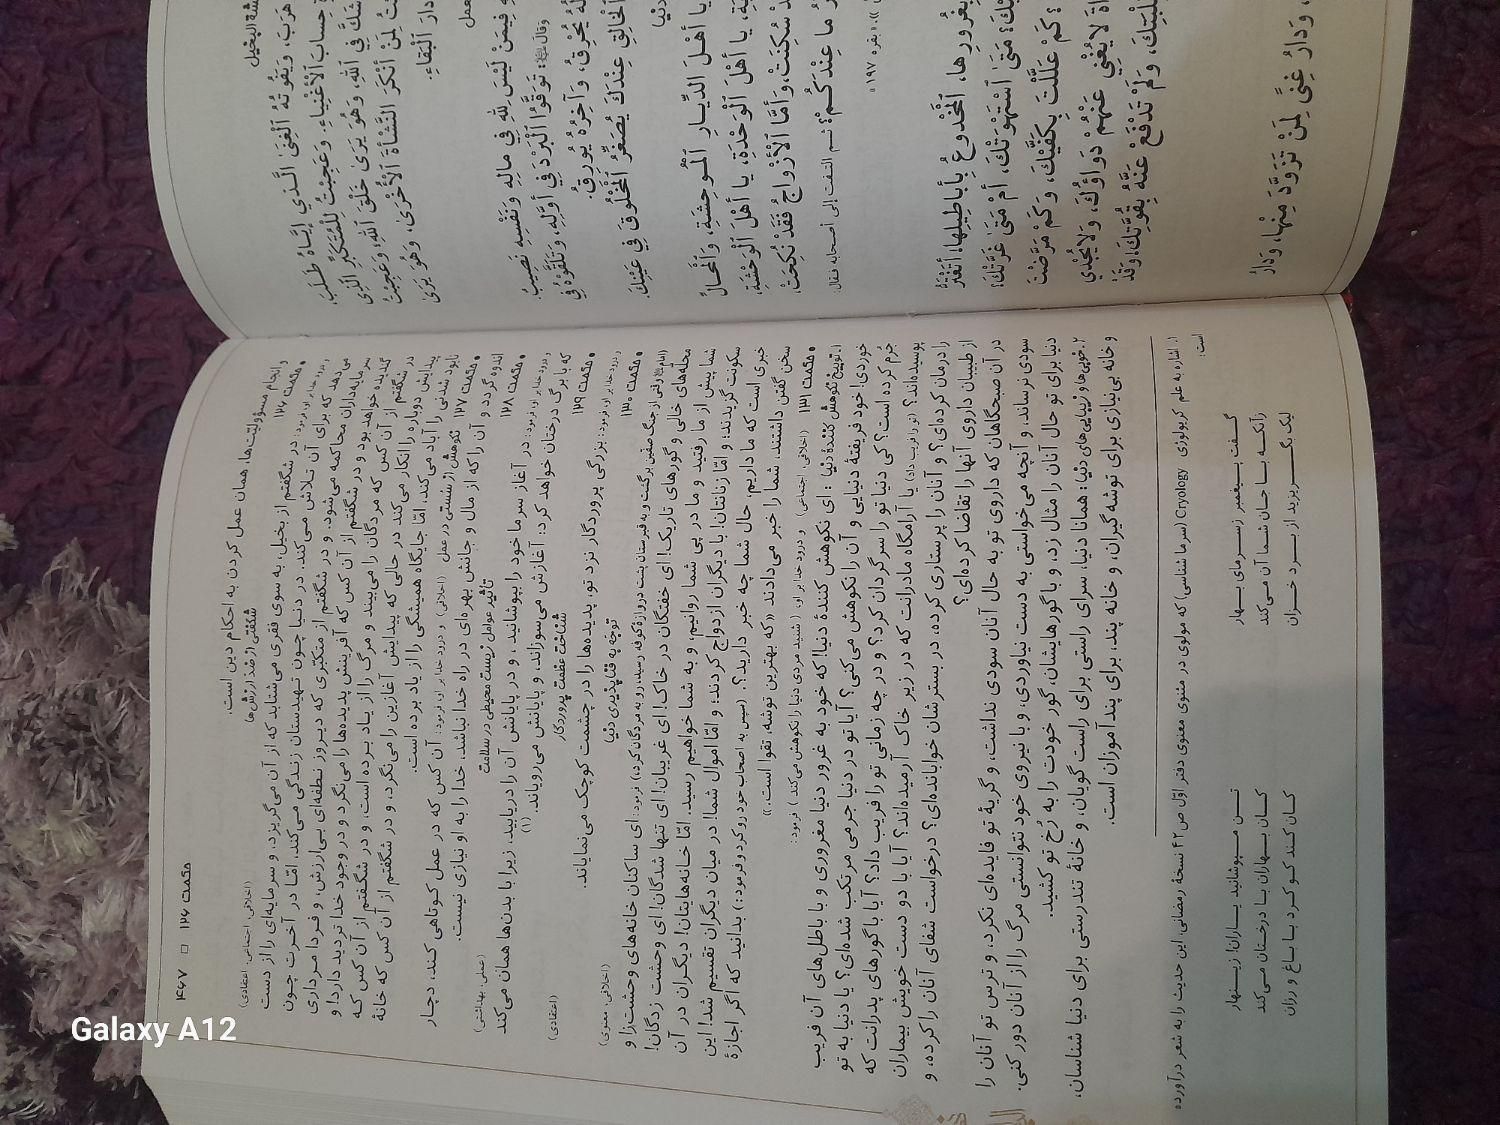 ۴۶۷ □ حکمت ۱۲۶
و انجام مسؤولیّت‌ها، همان عمل کردن به احکام دین است.
● حکمت ۱۲۶ شگفتی از ضدّ ارزش‌ها (اخلاقی، اجتماعی، اعتقادی)
و درود خدا بر او، فرمود: در شگفتم از بخیل، به سوی فقری می‌شتابد که از آن می‌گریزد، و سرمایه‌ای را از دست
می‌دهد که برای آن تلاش می‌کند. در دنیا چون تهیدستان زندگی می‌کند، امّا در آخرت چون
سرمایه‌داران محاکمه می‌شود. و در شگفتم از متکبّری که دیروز نطفه‌ای بی‌ارزش، و فردا مرداری
گندیده خواهد بود و در شگفتم از آن کس که آفرینش پدیده‌ها را می‌نگرد و در وجود خدا تردید دارد! و
در شگفتم از آن کس که مردگان را می‌بیند و مرگ را از یاد برده است، و در شگفتم از آن کس که
پیدایش دوباره را انکار می‌کند در حالی که پیدایش آغازین را می‌نگرد، و در شگفتم از آن کس که خانهٔ
نابود شدنی را آباد می‌کند، امّا جایگاه همیشگی را از یاد برده است.
● حکمت ۱۲۷ نکوهش از سُستی در عمل (اخلاقی) و درود خدا بر او، فرمود: آن کس که در عمل کوتاهی کند، دچار
اندوه گردد و آن را که از مال و جانش بهره‌ای در راه خدا نباشد، خدا را به او نیازی نیست.
● حکمت ۱۲۸ تأثیر عوامل زیست محیطی در سلامت (علمی، بهداشتی)
و درود خدا بر او، فرمود: در آغاز سرما خود را بپوشانید، و در پایانش آن را دریابید، زیرا با بدن‌ها همان می‌کند
که با برگ درختان خواهد کرد: آغازش می‌سوزاند، و پایانش می‌رویاند. (۱)
● حکمت ۱۲۹ شناخت عظمت پروردگار (اعتقادی)
و درود خدا بر او، فرمود: بزرگی پروردگار نزد تو، پدیده‌ها را در چشمت کوچک می‌نمایاند.
● حکمت ۱۳۰ توجّه به فناپذیری دنیا (اخلاقی، معنوی)
(امام وقتی از جنگ صفّین برگشت و به قبرستان پشت دروازهٔ کوفه رسید، رو به مردگان کرد:) فرمود: ای ساکنان خانه‌های وحشت‌زا و
محلّه‌های خالی و گورهای تاریک! ای خفتگان در خاک! ای غریبان! ای تنها شدگان! ای وحشت زدگان!
شما پیش از ما رفتید و ما در پی شما روانیم، و به شما خواهیم رسید. امّا خانه‌هایتان! دیگران در آن
سکونت گزیدند؛ و امّا زنانتان! با دیگران ازدواج کردند؛ و امّا اموال شما! در میان دیگران تقسیم شد! این
خبری است که ما داریم، حال شما چه خبر دارید؟. (سپس به اصحاب خود رو کرد و فرمود:) بدانید که اگر اجازهٔ
سخن گفتن داشتند، شما را خبر می‌دادند «که بهترین توشه، تقوا است.»
● حکمت ۱۳۱ (اخلاقی، اجتماعی) و درود خدا بر او، (شنید مردی دنیا را نکوهش می‌کند) فرمود:
۱. توبیخ نکوهش کنندهٔ دنیا: ای نکوهش کنندهٔ دنیا! که خود به غرور دنیا مغروری و با باطل‌های آن فریب
خوردی! خود فریفتهٔ دنیایی و آن را نکوهش می‌کنی؟ آیا تو در دنیا جرمی مرتکب شده‌ای؟ یا دنیا به تو
جُرم کرده است؟ کی دنیا تو را سرگردان کرد؟ و در چه زمانی تو را فریب داد؟ آیا با گورهای پدرانت که
پوسیده‌اند؟ (تو را فریب داد) یا آرامگاه مادرانت که در زیر خاک آرمیده‌اند؟ آیا با دو دست خویش بیماران
را درمان کرده‌ای؟ و آنان را پرستاری کرده، در بسترشان خوابانده‌ای؟ درخواست شفای آنان را کرده، و
از طبیبان داروی آنها را تقاضا کرده‌ای؟
در آن صبحگاهان که داروی تو به حال آنان سودی نداشت، و گریهٔ تو فایده‌ای نکرد، و ترس تو آنان را
سودی نرساند، و آنچه می‌خواستی به دست نیاوردی، و با نیروی خود نتوانستی مرگ را از آنان دور کنی.
دنیا برای تو حال آنان را مثال زد، و با گورهایشان، گور خودت را به رُخ تو کشید.
۲. خوبی‌ها و زیبایی‌های دنیا: همانا دنیا، سرای راستی برای راست گویان، و خانهٔ تندرستی برای دنیا شناسان،
و خانه بی‌نیازی برای توشه‌گیران، و خانه پند، برای پندآموزان است.
۱. اشاره به علم کریولوژی Cryology (سرما شناسی) که مولوی در مثنوی معنوی دفتر اوّل ص ۴۲ نسخهٔ رمضانی، این حدیث را به شعر درآورده
است:
گفت پیغمبر ز سرمای بهار تن مپوشانید یاران! زینهار
زآنکه با جان شما آن می‌کند کان بهاران با درختان می‌کند
لیک بگریزید از برد خزان کان کند کو کرد با باغ و رزان
هَرَبَ، وَيَفُوتُهُ ٱلْغِنَى الَّذِي إِيَّاهُ طَلَبَ
حِسَابَ ٱلْأَغْنِيَاءِ. وَعَجِبْتُ لِلْمُتَكَبِّرِ الَّذِي
شَكَّ فِي اللّهِ، وَهُوَ يَرَىٰ خَلْقَ اللّهِ، وَعَجِبْتُ
لِمَنْ أَنْكَرَ النَّشْأَةَ ٱلْأُخْرَىٰ، وَهُوَ يَرَىٰ
دَارَ ٱلْبَقَاءِ.
فِيمَنْ لَيْسَ لِلّهِ فِي مَالِهِ وَنَفْسِهِ نَصِيبٌ.
وَقَالَ: تَوَقَّوُا ٱلْبَرْدَ فِي أَوَّلِهِ، وَتَلَقَّوْهُ فِي
يُحْرِقُ، وَآخِرُهُ يُورِقُ.
ٱلْخَالِقِ عِنْدَكَ يُصَغِّرُ ٱلْمَخْلُوقَ فِي عَيْنِكَ.
يَا أَهْلَ الدِّيَارِ ٱلْمُوحِشَةِ، وَٱلْمَحَالِّ
يَا أَهْلَ ٱلْوَحْدَةِ، يَا أَهْلَ ٱلْوَحْشَةِ،
سُكِنَتْ، وَأَمَّا ٱلْأَزْوَاجُ فَقَدْ نُكِحَتْ،
مَا عِنْدَكُمْ؟ ثم التفت إلى أصحابه فقال:
«بقره ۱۹۷»
بِغُرُورِهَا، ٱلْمَخْدُوعُ بِأَبَاطِيلِهَا! أَتَغْتَرُّ
مَتَىٰ ٱسْتَهْوَتْكَ، أَمْ مَتَىٰ غَرَّتْكَ؟
كَمْ عَلَّلْتَ بِكَفَّيْكَ، وَكَمْ مَرَّضْتَ
لَا يُغْنِي عَنْهُمْ دَوَاؤُكَ، وَلَا يُجْدِي
بِطَلِبَتِكَ، وَلَمْ تَدْفَعْ عَنْهُ بِقُوَّتِكَ! وَقَدْ
وَدَارُ غِنًى لِمَنْ تَزَوَّدَ مِنْهَا، وَدَارُ
Galaxy A12